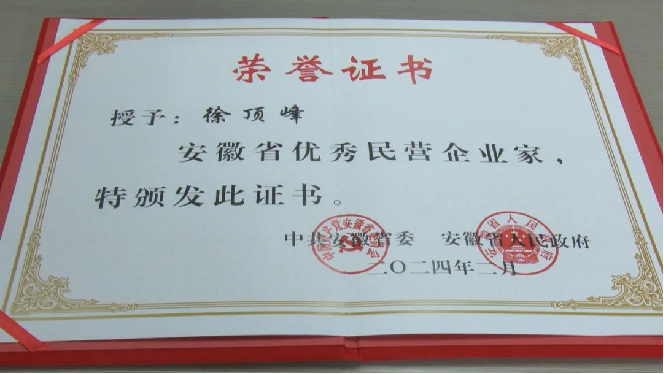 荣誉证书
授予：徐顶峰
安徽省优秀民营企业家，
特颁发此证书。
中共安徽省委 安徽省人民政府
二〇二四年二月